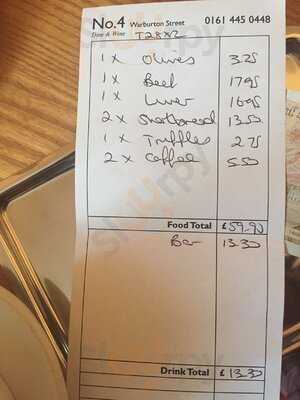 No.4 Warburton Street 0161 445 0448
Dine & Wine T28X2
1 x Olives 3.25
1 x Beef 17.95
1 x Liver 16.95
2 x Shortbread 13.50
1 x Truffles 2.75
2 x Coffee 5.50
Food Total £59.90
Bar 13.30
Drink Total £13.30